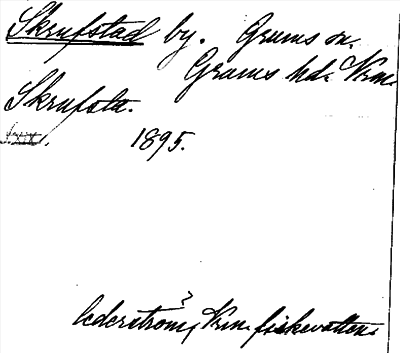 Skrufstad by. Grums sn.
Grums hd. Vrm.
Skrufsta.
1895.
Cederström, Vrm. fiskevatten